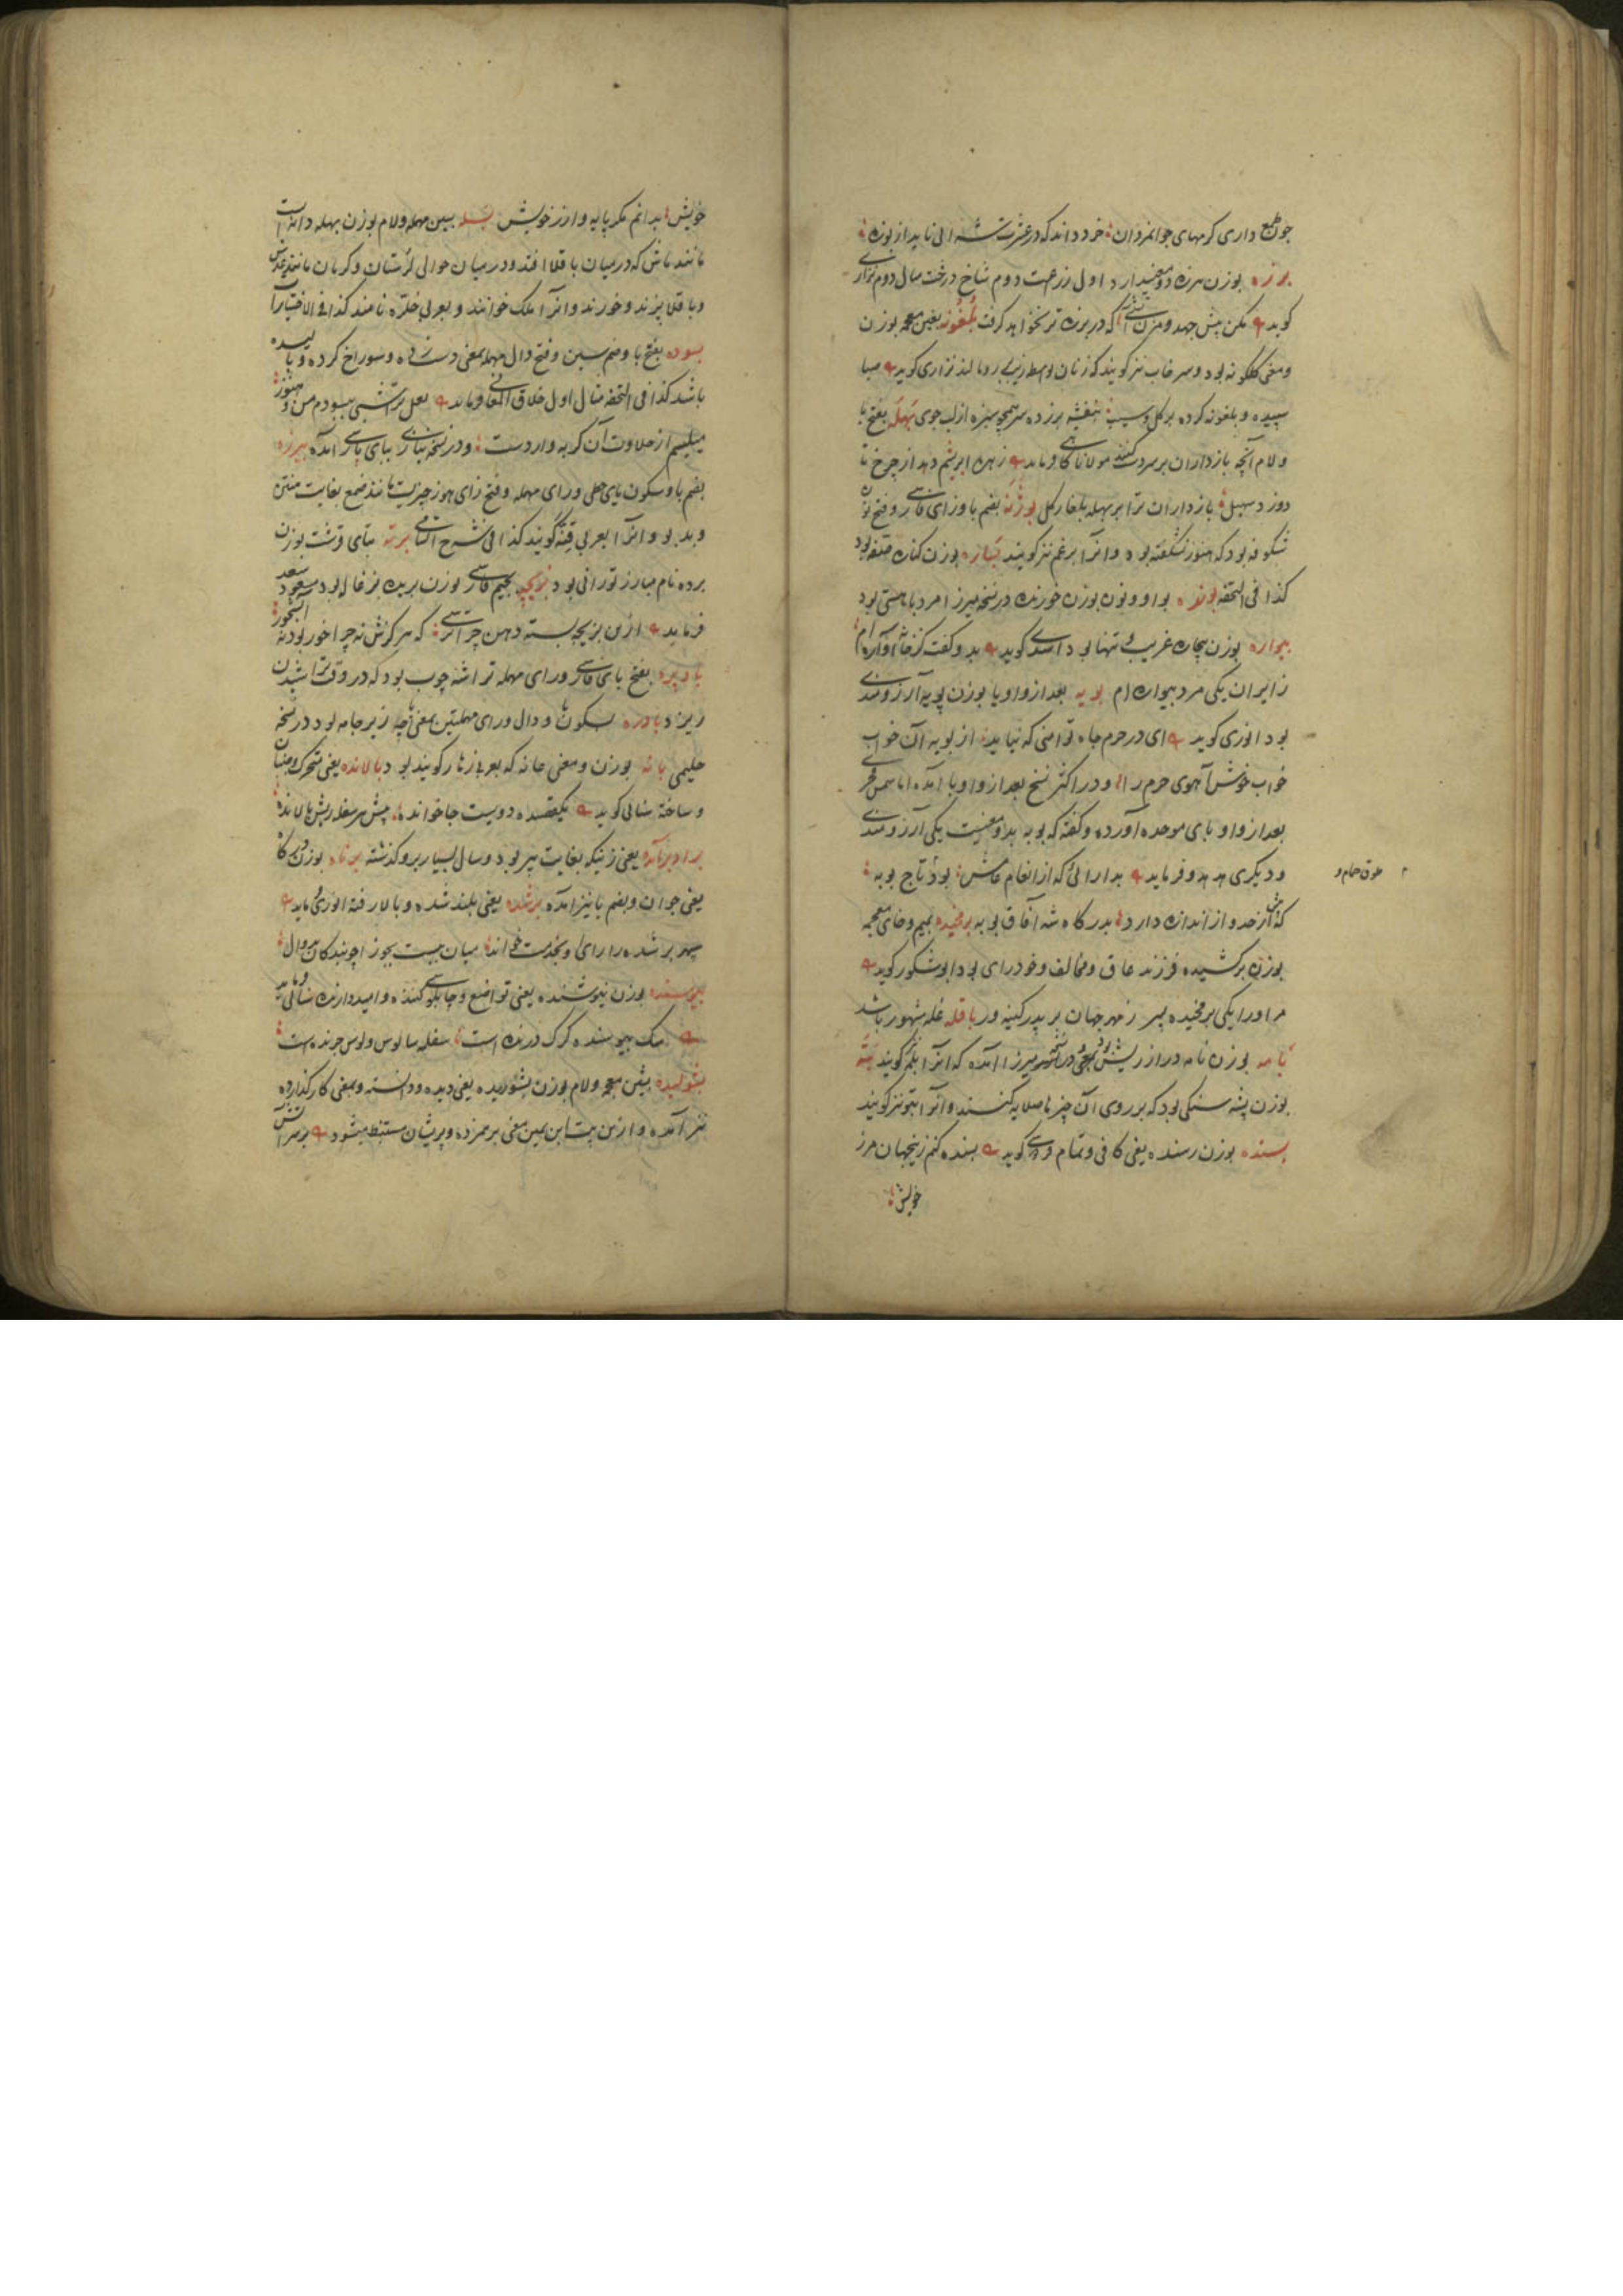 چون طمع داری کرمهای جوانمردان خرد داند که در عشرت شنه الی ناید از بوزه
برزه بوزن هرزه دو معنی دارد اول زراعت دوم شاخ درخت مثال دوم نزاری
کوید مکن پیش جهد و مزن تیشه که در برزه تر نخواهد کرفت بلغونه بغین معجمه بوزن
و معنی کلکونه بود و سرخاب نیز کویند که زنان بواسطه زیب بر رو مالند نزاری کوید صبا
سپیده و بلغونه کرده بر کل و سیب بنفشه بر زده سر همچو سبزه از لب جوی بهله بفتح با
و لام آنچه بازداران بر سر دست کنند مولانا کاهی فرماید زهره ابریشم دهد از چرخ تا
دوزد سهیل بازداران ترا بر بهله بلغار کل بوژنه بضم با و زای فارسی و فتح نون
شکوفه بود که هنوز نشکفته بود و آنرا برغم نیز کویند بیاره بوزن کناره
کذا فی التحفه بونده بواو و نون بوزن خورنده در نسخه میرزا مرد با هستی بود
بیواره بوزن بیچاره غریب و تنها بود اسدی کوید بدو کفت کز خانه آواره ام
ز ایران یکی مرد بیواره ام بویه بعد از واو یا بوزن پویه آرزومندی
بود انوری کوید ای در حرم جاه تو امنی که نیاید از بویه آن خواب
خوش آهوی حرم را و در اکثر نسخ بعد از واو یا آمده اما شمس فخری
بعد از واو بای موحده آورده و کفته که بوبه بدو معنیست یکی آرزومندی
و دیکری هدهد و فرماید بدارائی که از انعام عامش بود تاج بوبه
که ارش حد و از اندازه دارد بدرکاه شه آفاق بوبه برمخیده بمیم و خای معجمه
بوزن برکشیده فرزند عاق و مخالف و خودرای بود ابوشکور کوید
مر او را یکی برمخیده پسر ز مهر جهان بر پدر کینه ور باقله غله مشهور باشد
بامه بوزن نامه دراز ریش بود و در نسخه میرزا آمده که آنرا بلمه کویند بته
بوزن پته سنکی بود که بر روی آن چیزها صلایه کنند و آنرا بتو نیز کویند
بسنده بوزن رسنده یعنی کافی و تمام کوید بسنده کنم زینجهان مرز
خویش
خویش بدانم مکر پایه و ارز خویش بسله بسین مهمله و لام بوزن بهله دانه ایست
مانند ماش که در میان باقلا افتد و در میان حوالی لرستان و کرمان مانند عدس
و باقلا پزند و خورند و آنرا ملک خوانند و بعربی خلر نامند کذا فی الاختیارات
بسوده بفتح با و ضم سین و فتح دال مهمله بمعنی دست زده و سوراخ کرده و یا لیسیده
باشد کذا فی التحفه مثال اول خلاق المعانی فرماید بعل تو شبی بسودم من و هنوز
میلیسم از حلاوت آن کربه وار دست و در نسخه نیازی ببای پارسی آمده بیرزه
بضم با و سکون یای حطی و رای مهمله و فتح زای هوز چیزیست مانند صمغ بغایت منتن
و بدبو و آنرا بعربی قنه کویند کذا فی شرح السامی برته بتای قرشت بوزن
برده نام مبارز تورانی بود بزیچه بجیم فارسی بوزن دریچه بزغاله بود مسعود سعد
فرماید ازین بزیچه بسته دهن چرا ترسی که هرکزش نه چرا خور بود نه آبشخور
باویره بفتح بای فارسی و رای مهمله تراشه چوب بود که در وقت تراشیدن
ریزد بادره بسکون و دال و رای مهملتین بمعنی پاچه زیر جامه بود در نسخه
حلیمی بانه بوزن و معنی عانه که بعربی زهار کویند بود بالانده یعنی متحرک و جنبان
و ساخته سنائی کوید یکقصیده دویست جا خوانده پیش هر سفله ریش بالانده
برآمده یعنی زنیکه بغایت پیر بود و سال بسیار برو کذشته برناه بوزن درکاه
یعنی جوان و بضم با نیز آمده برشده یعنی بلند شده و بالا رفته انوری فرماید
سپهر برشده را رای او بخدمت خواند میان ببست بجوزا چو بندکان بدوال
بیوسنده بوزن نیوشنده یعنی تواضع و چاپلوسی کننده و امیدوارنده سنائی فرماید
سک بیوسنده کرک درنده است سفله سالوس و لوس خرنده است
بشولیده بشین معجمه و لام بوزن پشوریده یعنی دیده و دانسته و بمعنی کار کذارده
نیز آمده و ازین بیت ابن یمین معنی برهم زده و پریشان مستنبط میشود بر سر آتش